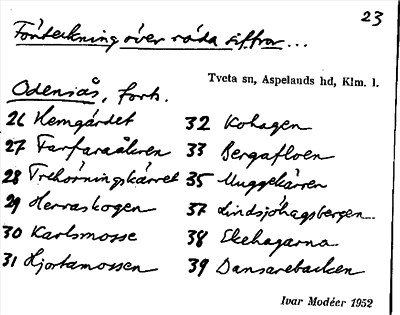 23
Förteckning över röda siffror...
Tveta sn, Aspelands hd, Klm. l.
Odensiås, forts.
26 Hemgärdet
27 Farfaraåkren
28 Trehörningskärret
29 Herraskogen
30 Karlsmosse
31 Hjortamossen
32 Kohagen
33 Bergafloen
35 Muggekärren
37 Lindsjöhagsbergen
38 Ekehagarna
39 Dansarebacken
Ivar Modéer 1952